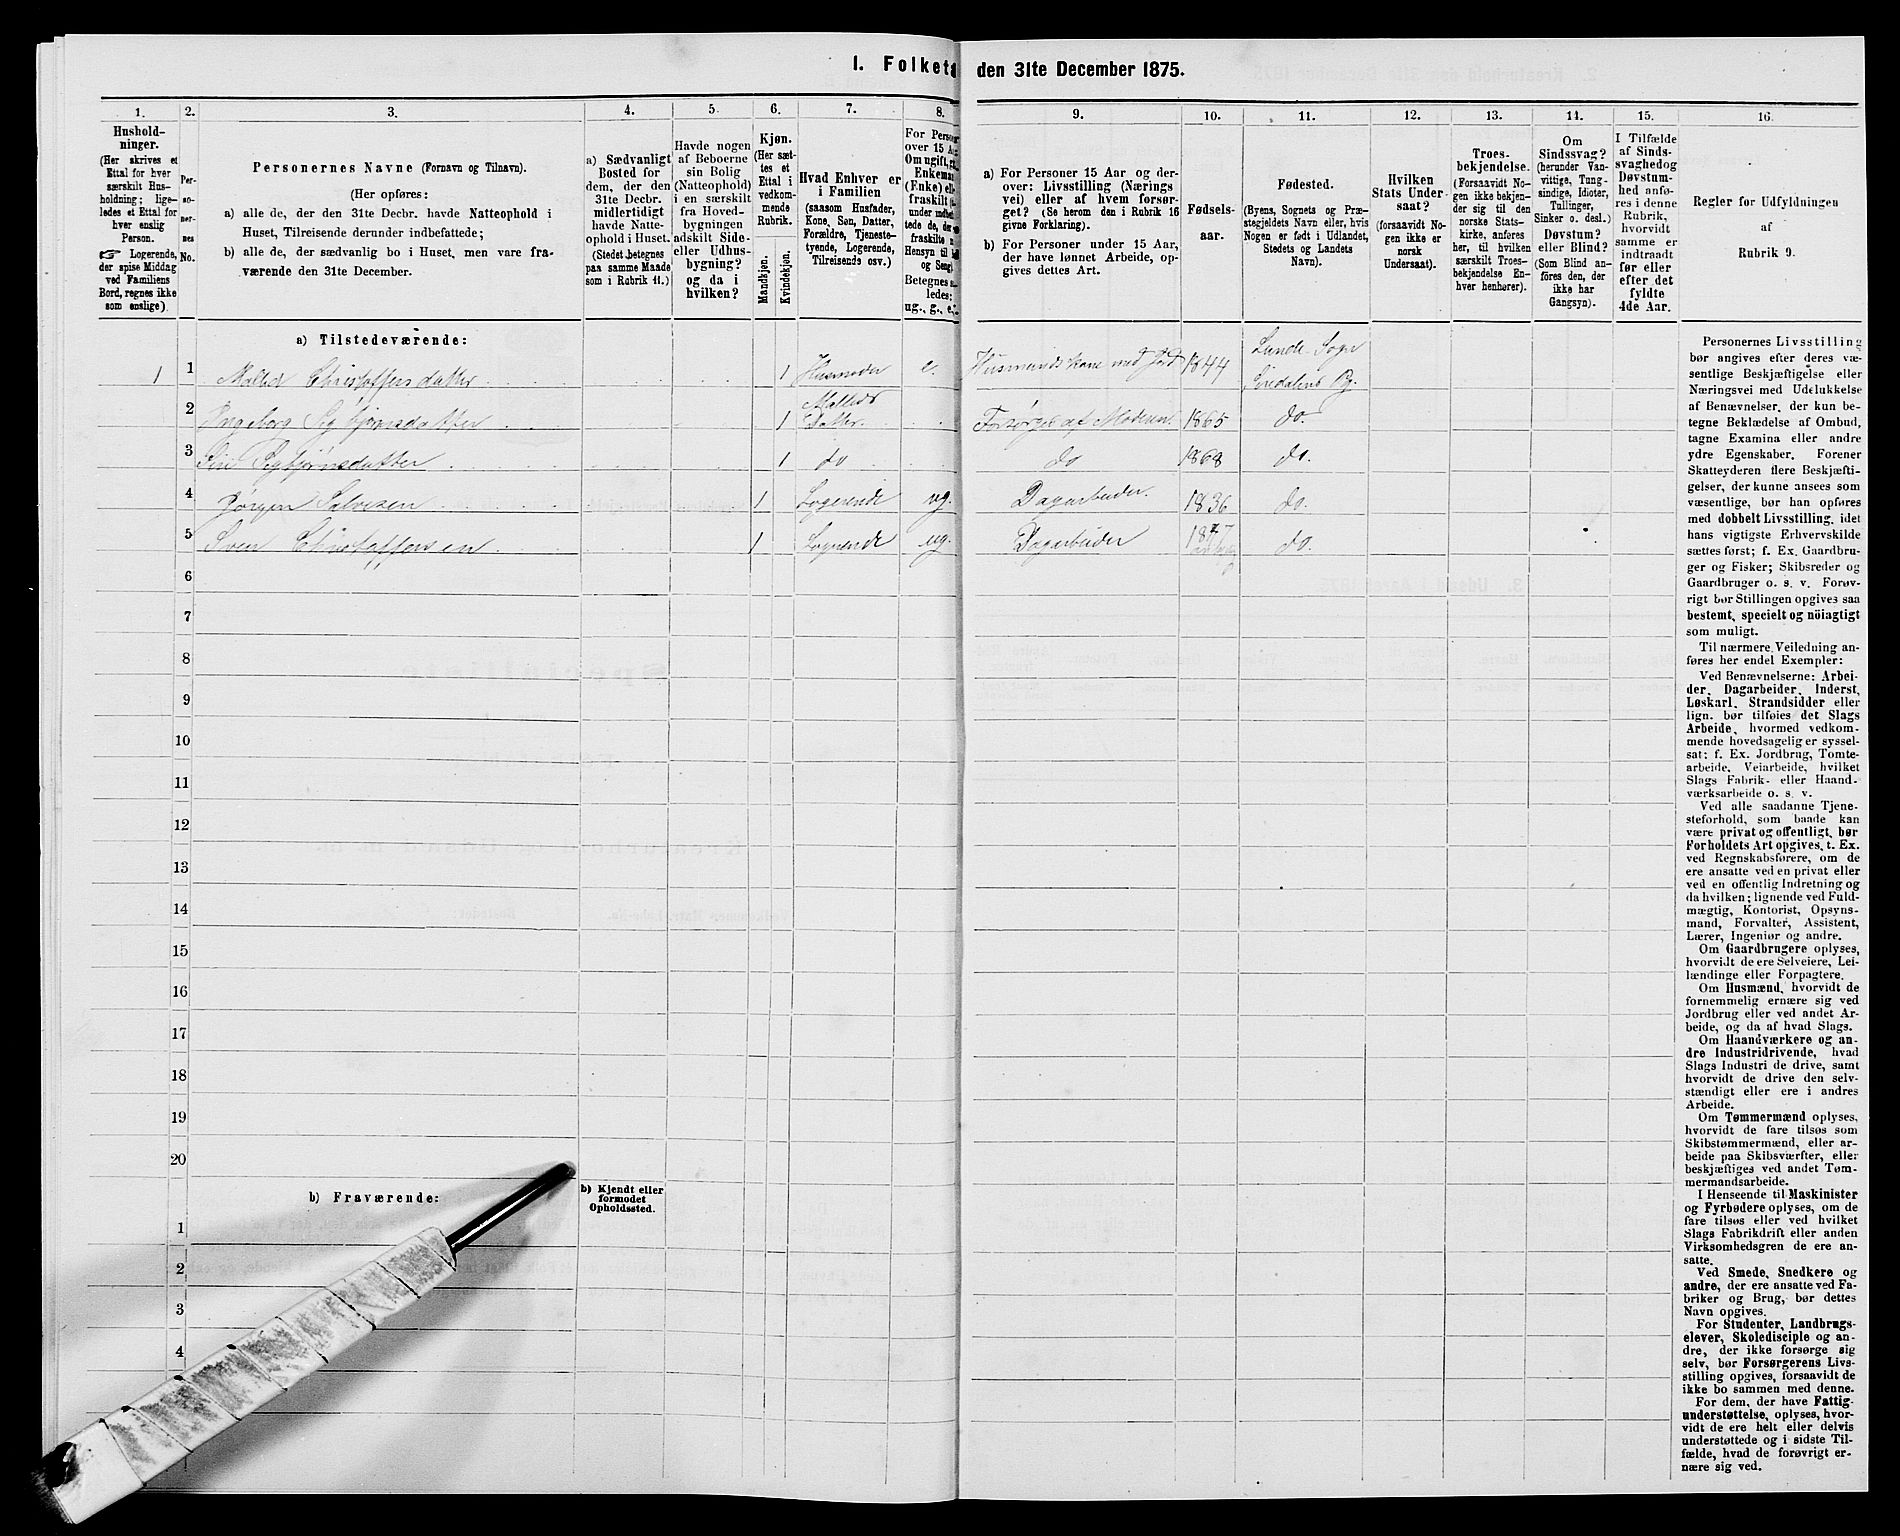 I. Folket
den 31te December 1875.
1.
Hushold-
ninger.
(Her skrives et
Ettal for hver
særskilt Hus-
holdning; lige-
ledes et Ettal for
hver enslig
Person.
☞ Logerende,
der spise Middag
ved Familiens
Bord, regnes ikke
som enslige)
2.
Per-
so-
ner-
nes
No.
3.
Personernes Navne (Fornavn og Tilnavn).
(Her opføres:
a) alle de, der den 31te Decbr. havde Natteophold i
Huset, Tilreisende derunder indbefattede;
b) alle de, der sædvanlig bo i Huset, men vare fra-
værende den 31te December.
4.
a) Sædvanligt
Bosted for
dem, der den
31te Decbr.
midlertidigt
havde Natte-
ophold i Huset.
(Stedet betegnes
paa samme Maade
som i Rubrik 11.)
5.
Havde nogen
af Beboerne
sin Bolig
(Natteophold)
i en særskilt
fra Hoved-
bygningen
adskilt Side-
eller Udhus-
bygning?
og da i
hvilken?
6.
Kjøn.
(Her sæt-
tes et
Ettal i
vedkom-
mende
Rubrik.
Mandkjøn.
Kvindekjøn.
7.
Hvad Enhver er
i Familien
(saasom Husfader,
Kone, Søn, Datter,
Forældre, Tjeneste-
tyende, Logerende,
Tilreisende osv.)
8.
For Person
over 15 Aa
Om ugift, g
Enkema
(Enke) ell
fraskilt
under indb
tede de, der
fraskilte
Hensyn til b
og Seng)
Betegnes s
ledes:
ug., g., e.,
9.
a) For Personer 15 Aar og der-
over: Livsstilling (Nærings
vei) eller af hvem forsør-
get? (Se herom den i Rubrik 16
givne Forklaring).
b) For Personer under 15 Aar,
der have lønnet Arbeide, op-
gives dettes Art.
10.
Fødsels-
aar.
11.
Fødested.
(Byens, Sognets og Præ-
stegjeldets Navn eller, hvis
Nogen er født i Udlandet,
Stedets og Landets
Navn).
12.
Hvilken
Stats Under-
saat?
(forsaavidt No-
gen ikke er
norsk
Undersaat).
13.
Troes-
bekjendelse.
(Forsaavidt No-
gen ikke bekjen-
der sig til den
norske Stats-
kirke, anføres
her, til hvilken
særskilt Troes-
bekjendelse En-
hver henhører).
14.
Om
Sindssvag?
(herunder Van-
vittige, Tung-
sindige, Idioter,
Tullinger,
Sinker o. desl.)
Døvstum?
eller Blind?
(Som Blind an-
føres den, der
ikke har
Gangsyn).
15.
I Tilfælde
af Sinds-
svaghed og
Døvstum-
hed anfø-
res i denne
Rubrik,
hvorvidt
samme er
indtraadt
før eller
efter det
fyldte
4de Aar.
16.
Regler for Udfyldningen
af
Rubrik 9.
a) Tilstedeværende:
1 1 Malled Christoffersdatter 1 Husmoder e. Husmandskone med Jord 1844 Lunde Sogn
Siredalens Pg.
2 Ingeborg Sigbjørnsdatter 1 Malleds
Datter Forsørges af Moderen 1865 do.
3 Siri Sigbjørnsdatter 1 do do 1868 do.
4 Jørgen Salvesen 1 Logerende ug. Dagarbeider. 1836 do.
5 Sven Christoffersen 1 Logerende ug. Dagarbeider do.
6
7
8
9
10
11
12
13
14
15
16
17
18
19
20
b) Fraværende:
b) Kjendt eller
formodet
Opholdssted.
1
2
3
4
Personernes Livsstilling
bør angives efter deres væ-
sentlige Beskjæftigelse eller
Næringsvei med Udelukkelse
af Benævnelser, der kun be-
tegne Beklædelse af Ombud,
tagne Examina eller andre
ydre Egenskaber. Forener
Skatteyderen flere Beskjæfti-
gelser, der kunne ansees som
væsentlige, bør han opføres
med dobbelt Livsstilling, idet
hans vigtigste Erhvervskilde
sættes først; f. Ex. Gaardbru-
ger og Fisker; Skibsreder og
Gaardbruger o. s. v. Forøv-
rigt bør Stillingen opgives saa
bestemt, specielt og nöiagtigt
som muligt.
Til nærmere Veiledning an-
føres her endel Exempler:
Ved Benævnelserne: Arbei-
der, Dagarbeider, Inderst,
Løskarl, Strandsidder eller
lign. bør tilføies det Slags
Arbeide, hvormed vedkom-
mende hovedsagelig er syssel-
sat; f. Ex. Jordbrug, Tomte-
arbeide, Veiarbeide, hvilket
Slags Fabrik- eller Haand-
værksarbeide o. s. v.
Ved alle saadanne Tjene-
steforhold, som baade kan
være privat og offentligt, bør
Forholdets Art opgives, t. Ex.
ved Regnskabsførere, om de
ere ansatte ved en privat eller
ved en offentlig Indretning og
da hvilken; lignende ved Fuld-
mægtig, Kontorist, Opsyns-
mand, Forvalter, Assistent,
Lærer, Ingeniør og andre.
Om Gaardbrugere oplyses,
hvorvidt de ere Selveiere, Lei-
lændinge eller Forpagtere.
Om Husmænd, hvorvidt de
fornemmelig ernære sig ved
Jordbrug eller ved andet Ar-
beide, og da af hvad Slags.
Om Haandværkere og an-
dre Industridrivende, hvad
Slags Industri de drive, samt
hvorvidt de drive den selv-
stændigt eller ere i andres
Arbeide.
Om Tømmermænd oplyses,
hvorvidt de fare tilsøs som
Skibstømmermænd, eller ar-
beide paa Skibsværfter, eller
beskjæftiges ved andet Tøm-
mermandsarbeide.
I Henseende til Maskinister
og Fyrbødere oplyses, om de
fare tilsøs eller ved hvilket
Slags Fabrikdrift eller anden
Virksomhedsgren de ere an-
satte.
Ved Smede, Snedkere og
andre, der ere ansatte ved Fa-
briker og Brug, bør dettes
Navn opgives.
For Studenter, Landbrugs-
elever, Skoledisciple og an-
dre, der ikke forsørge sig
selv, bør Forsørgerens Livs-
stilling opgives, forsaavidt de
ikke bo sammen med denne.
For dem, der have Fattig-
understøttelse, oplyses, hvor-
vidt de ere helt eller delvis
understøttede og i sidste Til-
fælde, hvad de forøvrigt er-
nære sig ved.